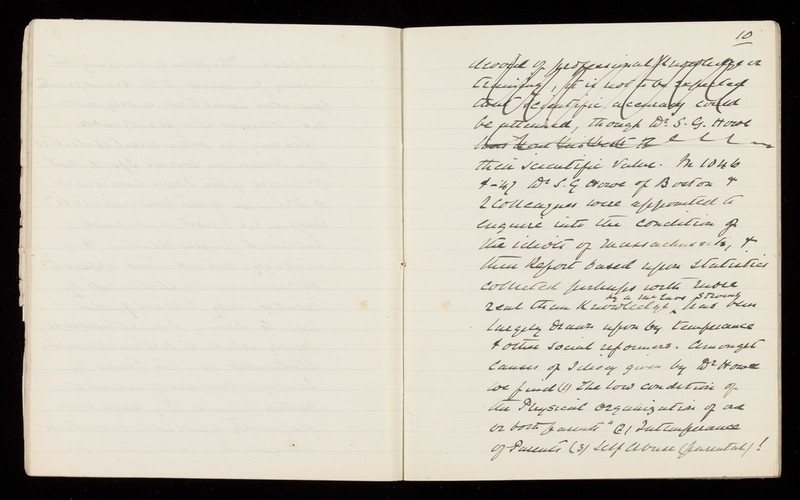 10
devoid of professional knowledge or
training, it is not to be expected
that scientific accuracy could
be attained, though Dr. S. G. Howe
their scientific value. In 1846
&-'47 Dr S. G Howe of Boston &
2 Colleagues were appointed to
enquire into the condition of
the idiots of Massachusetts, &
their Report based upon statistics
collected perhaps with more
zeal than Knowledge, has been
by a serving
largely drawn upon by temperance
& other social reformers. Amongst
Causes of Idiocy given by Dr Howe
we find (1) The low condition of
the Physical Organization of one
or both parents" (2) Intemperance
of Parents (3) Self Abuse (parental)!